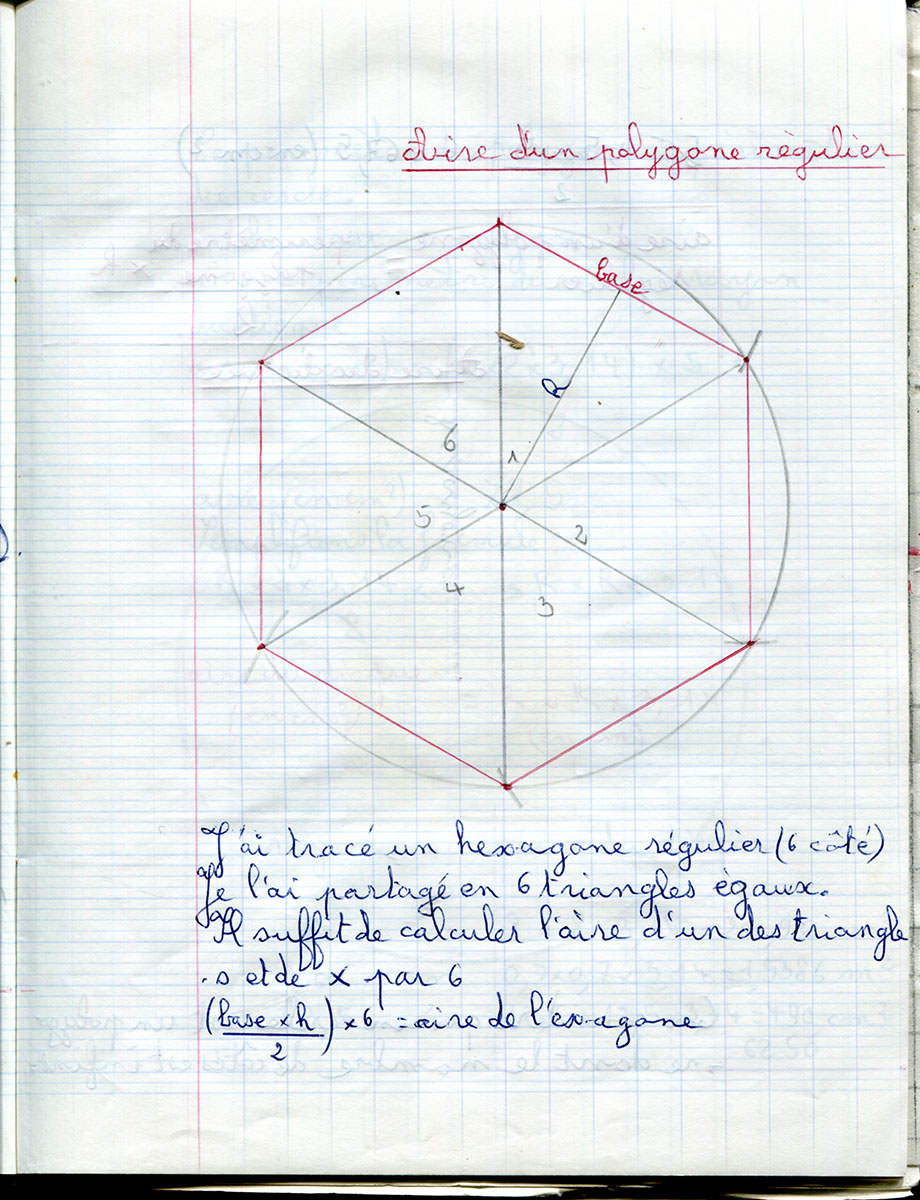 Aire d'un polygone règulier
base
h
6
1
5
2
4
3
J'ai tracé un hexagone régulier (6 côté)
Je l'ai partagé en 6 triangles égaux.
Il suffit de calculer l'aire d'un des triangle
.s et de x par 6
(base x h / 2) x 6 = aire de l'éxagone